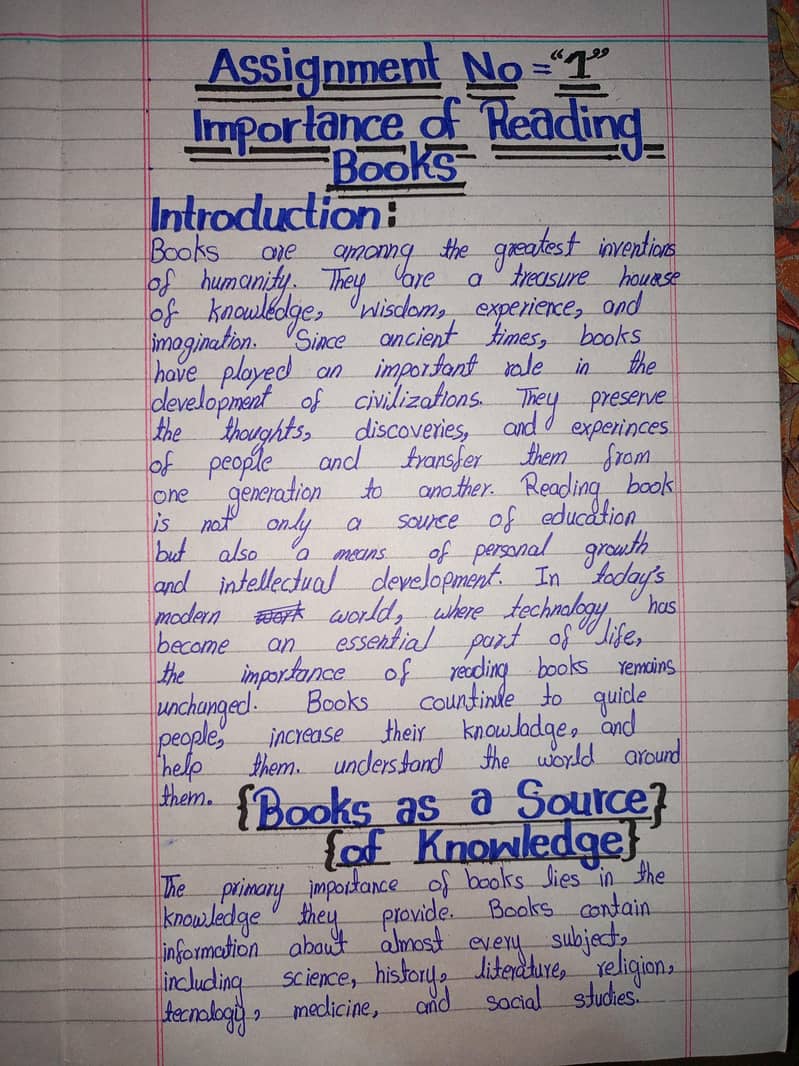 Assignment No = "1"
Importance of Reading
Books
Introduction:
Books are amonng the greatest inventions
of humanity. They are a treasure houese
of knowledge, wisdom, experience, and
imagination. Since ancient times, books
have played an important role in the
development of civilizations. They preserve
the thoughts, discoveries, and experinces
of people and transfer them from
one generation to another. Reading book
is not only a source of education
but also a means of personal growth
and intellectual development. In today's
modern world, where technology has
become an essential part of life,
the importance of reading books remains
unchanged. Books countinue to guide
people, increase their knowladge, and
help them. understand the world around
them.
{Books as a Source}
{of Knowledge}
The primary importance of books lies in the
knowledge they provide. Books contain
information about almost every subject,
including science, history, literature, religion,
tecnology, medicine, and social studies.